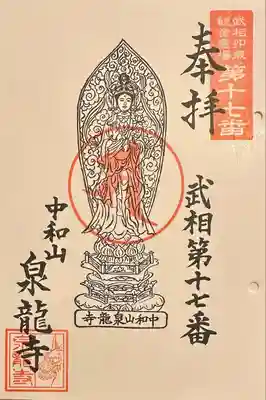 武相卯歳
観音霊場
第十七番
奉拝
武相第十七番
寺龍泉山和中
中和山
泉龍寺